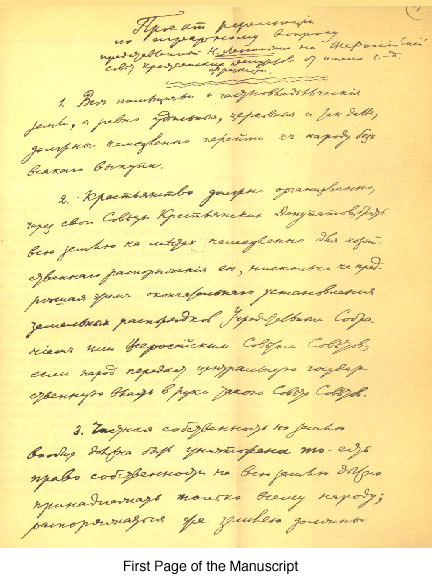 Проект резолюции
по аграрному вопросу
предложенный Н. Лениным на Всероссийский
совет крестьянских депутатов от имени с.-д.
фракции.
1. Все помещичьи и частновладельческие
земли, а равно удельные, церковные и так далее,
должны немедленно перейти к народу без
всякого выкупа.
2. Крестьянство должно организованно,
через свои Советы Крестьянских Депутатов, брать
всю землю на местах немедленно для хозяй-
ственного распоряжения ею, нисколько не пред-
решая этим окончательного установления
земельных распорядков Учредительным Собра-
нием или Всероссийским Советом Советов,
если народ передаст центральную государ-
ственную власть в руки такого Совета Советов.
3. Частная собственность на землю
вообще должна быть уничтожена то-есть
право собственности на всю землю должно
принадлежать только всему народу;
распоряжаться же землею должны
First Page of the Manuscript